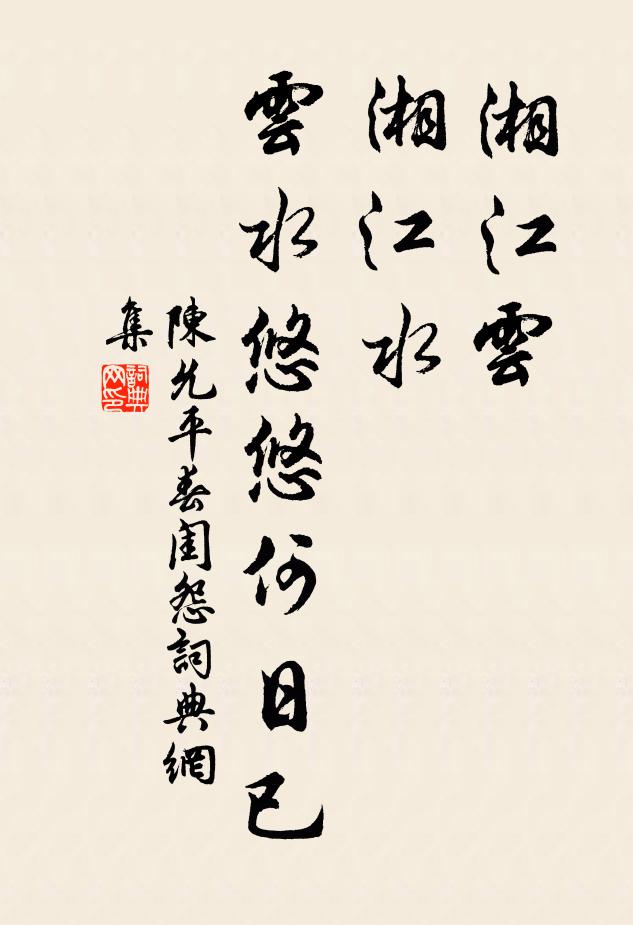 湘江雲
湘江水
雲水悠悠何日已
陳允平春閨怨詞典網
集
詞典网印